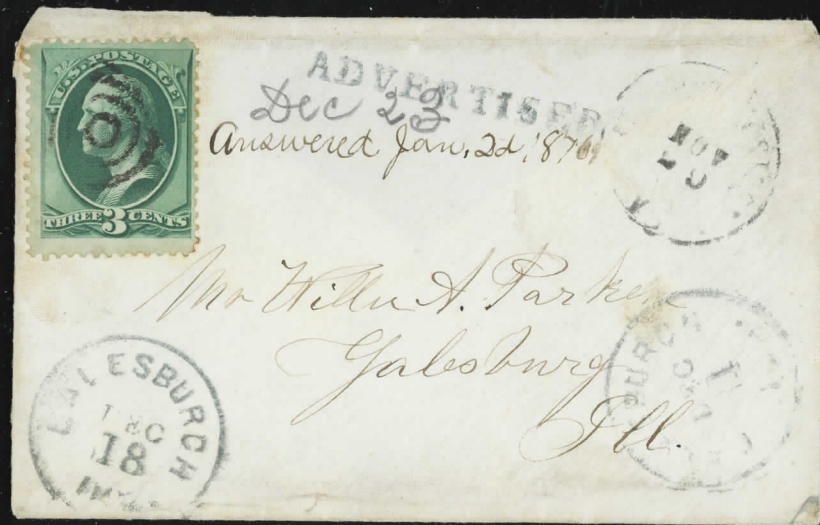 U.S. POSTAGE
THREE 3 CENTS
ADVERTISED
Dec 23
Answered Jan, 2d, 1876
NOV
Mr Willie A. Parker
Galesburg
Ill.
GALESBURGH
DEC
18
BURGH